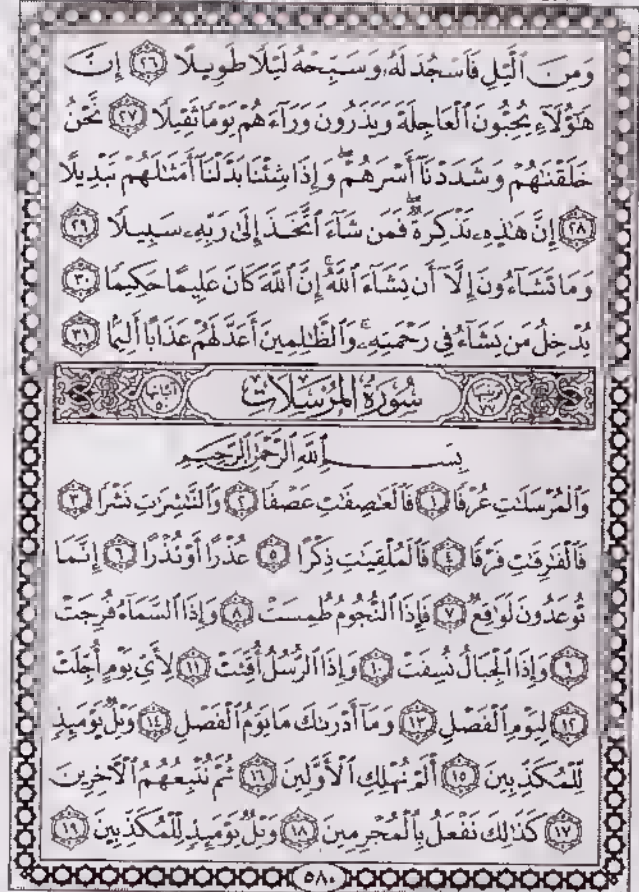 وَمِنَ ٱلَّيْلِ فَٱسْجُدْ لَهُۥ وَسَبِّحْهُ لَيْلًا طَوِيلًا ٢٦ إِنَّ
هَٰٓؤُلَآءِ يُحِبُّونَ ٱلْعَاجِلَةَ وَيَذَرُونَ وَرَآءَهُمْ يَوْمًا ثَقِيلًا ٢٧ نَّحْنُ
خَلَقْنَٰهُمْ وَشَدَدْنَآ أَسْرَهُمْ ۖ وَإِذَا شِئْنَا بَدَّلْنَآ أَمْثَٰلَهُمْ تَبْدِيلًا
٢٨ إِنَّ هَٰذِهِۦ تَذْكِرَةٌ ۖ فَمَن شَآءَ ٱتَّخَذَ إِلَىٰ رَبِّهِۦ سَبِيلًا ٢٩
وَمَا تَشَآءُونَ إِلَّآ أَن يَشَآءَ ٱللَّهُ ۚ إِنَّ ٱللَّهَ كَانَ عَلِيمًا حَكِيمًا ٣٠
يُدْخِلُ مَن يَشَآءُ فِى رَحْمَتِهِۦ ۚ وَٱلظَّٰلِمِينَ أَعَدَّ لَهُمْ عَذَابًا أَلِيمًۢا ٣١
ترتيبها ٧٧ سُورَةُ المُرْسَلَاتِ آياتها ٥٠
بِسْمِ ٱللَّهِ ٱلرَّحْمَٰنِ ٱلرَّحِيمِ
وَٱلْمُرْسَلَٰتِ عُرْفًا ١ فَٱلْعَٰصِفَٰتِ عَصْفًا ٢ وَٱلنَّٰشِرَٰتِ نَشْرًا ٣
فَٱلْفَٰرِقَٰتِ فَرْقًا ٤ فَٱلْمُلْقِيَٰتِ ذِكْرًا ٥ عُذْرًا أَوْ نُذْرًا ٦ إِنَّمَا
تُوعَدُونَ لَوَٰقِعٌ ٧ فَإِذَا ٱلنُّجُومُ طُمِسَتْ ٨ وَإِذَا ٱلسَّمَآءُ فُرِجَتْ
٩ وَإِذَا ٱلْجِبَالُ نُسِفَتْ ١٠ وَإِذَا ٱلرُّسُلُ أُقِّتَتْ ١١ لِأَىِّ يَوْمٍ أُجِّلَتْ
١٢ لِيَوْمِ ٱلْفَصْلِ ١٣ وَمَآ أَدْرَىٰكَ مَا يَوْمُ ٱلْفَصْلِ ١٤ وَيْلٌ يَوْمَئِذٍ
لِّلْمُكَذِّبِينَ ١٥ أَلَمْ نُهْلِكِ ٱلْأَوَّلِينَ ١٦ ثُمَّ نُتْبِعُهُمُ ٱلْءَاخِرِينَ
١٧ كَذَٰلِكَ نَفْعَلُ بِٱلْمُجْرِمِينَ ١٨ وَيْلٌ يَوْمَئِذٍ لِّلْمُكَذِّبِينَ ١٩
٥٨٠